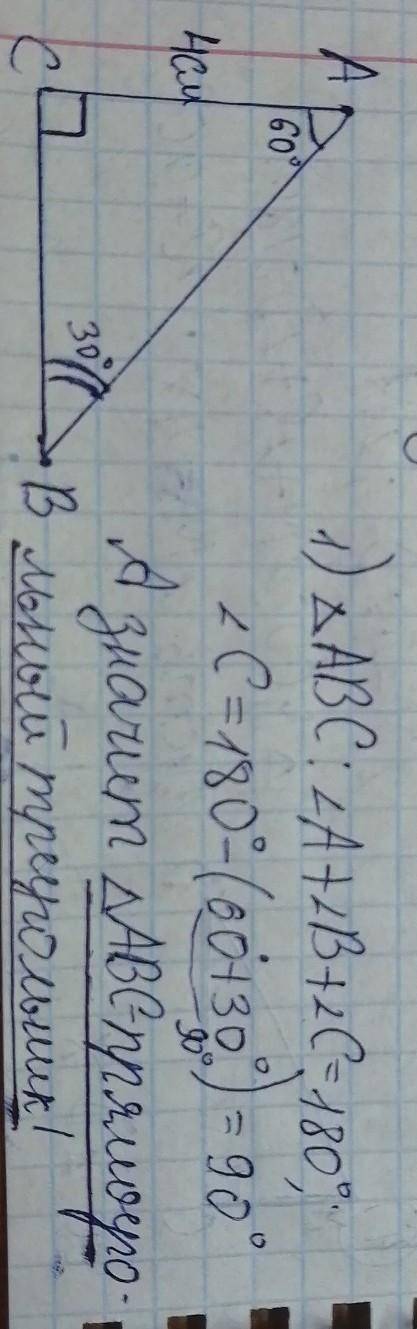 A
4см
60°
30°
C
B
1) △ABC: ∠A+∠B+∠C=180°,
∠C=180°-(60°+30°)=90°
90°
А значит △ABC-прямоуго-
льный треугольник!